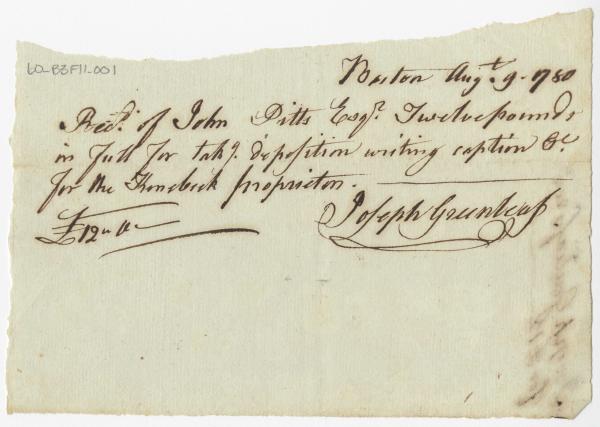 60-B3F11-001
Boston Augt. 9. 1780
Recd. of John Pitts Esqr. Twelve pounds
in full for takg. deposition writing caption &c
for the Kenebeck proprietors.
£12 „ 0 „
Joseph Greenleaf